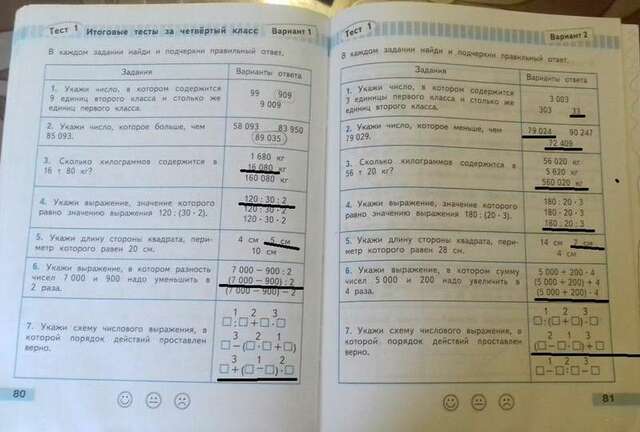 Тест 1 Итоговые тесты за четвёртый класс Вариант 1
В каждом задании найди и подчеркни правильный ответ.
Задания Варианты ответа
1. Укажи число, в котором содержится
9 единиц второго класса и столько же
единиц первого класса.
99 909
9 009
2. Укажи число, которое больше, чем
85 093.
58 093 83 950
89 035
3. Сколько килограммов содержится в
16 т 80 кг?
1 680 кг
16 080 кг
160 080 кг
4. Укажи выражение, значение которого
равно значению выражения 120 : (30 · 2).
120 : 30 : 2
120 : 30 · 2
120 · 30 · 2
5. Укажи длину стороны квадрата, пери-
метр которого равен 20 см.
4 см 5 см
10 см
6. Укажи выражение, в котором разность
чисел 7 000 и 900 надо уменьшить в
2 раза.
7 000 − 900 : 2
(7 000 − 900) : 2
(7 000 − 900) − 2
7. Укажи схему числового выражения, в
которой порядок действий проставлен
верно.
1 2 3
□ : □ + □ · □
3 2 1
□ − (□ · □ + □)
3 1 2
□ + (□ − □) · □
80
Тест 1 Вариант 2
В каждом задании найди и подчеркни правильный ответ.
Задания Варианты ответа
1. Укажи число, в котором содержится
3 единицы первого класса и столько же
единиц второго класса.
3 003
303 33
2. Укажи число, которое меньше, чем
79 029.
79 024 90 247
72 409
3. Сколько килограммов содержится в
56 т 20 кг?
56 020 кг
5 620 кг
560 020 кг
4. Укажи выражение, значение которого
равно значению выражения 180 : (20 · 3).
180 : 20 · 3
180 · 20 · 3
180 : 20 : 3
5. Укажи длину стороны квадрата, пери-
метр которого равен 28 см.
14 см 7 см
4 см
6. Укажи выражение, в котором сумму
чисел 5 000 и 200 надо увеличить в
4 раза.
5 000 + 200 · 4
(5 000 + 200) + 4
(5 000 + 200) · 4
7. Укажи схему числового выражения, в
которой порядок действий проставлен
верно.
1 2 3
□ : (□ · □ + □)
2 1 3
□ − (□ · □ + □)
1 2 3
□ · □ : □ − □
81